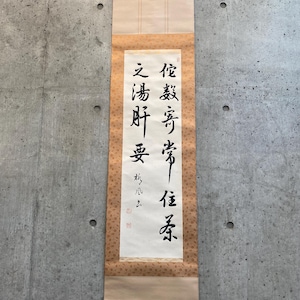 侘数寄常住茶
之湯肝要